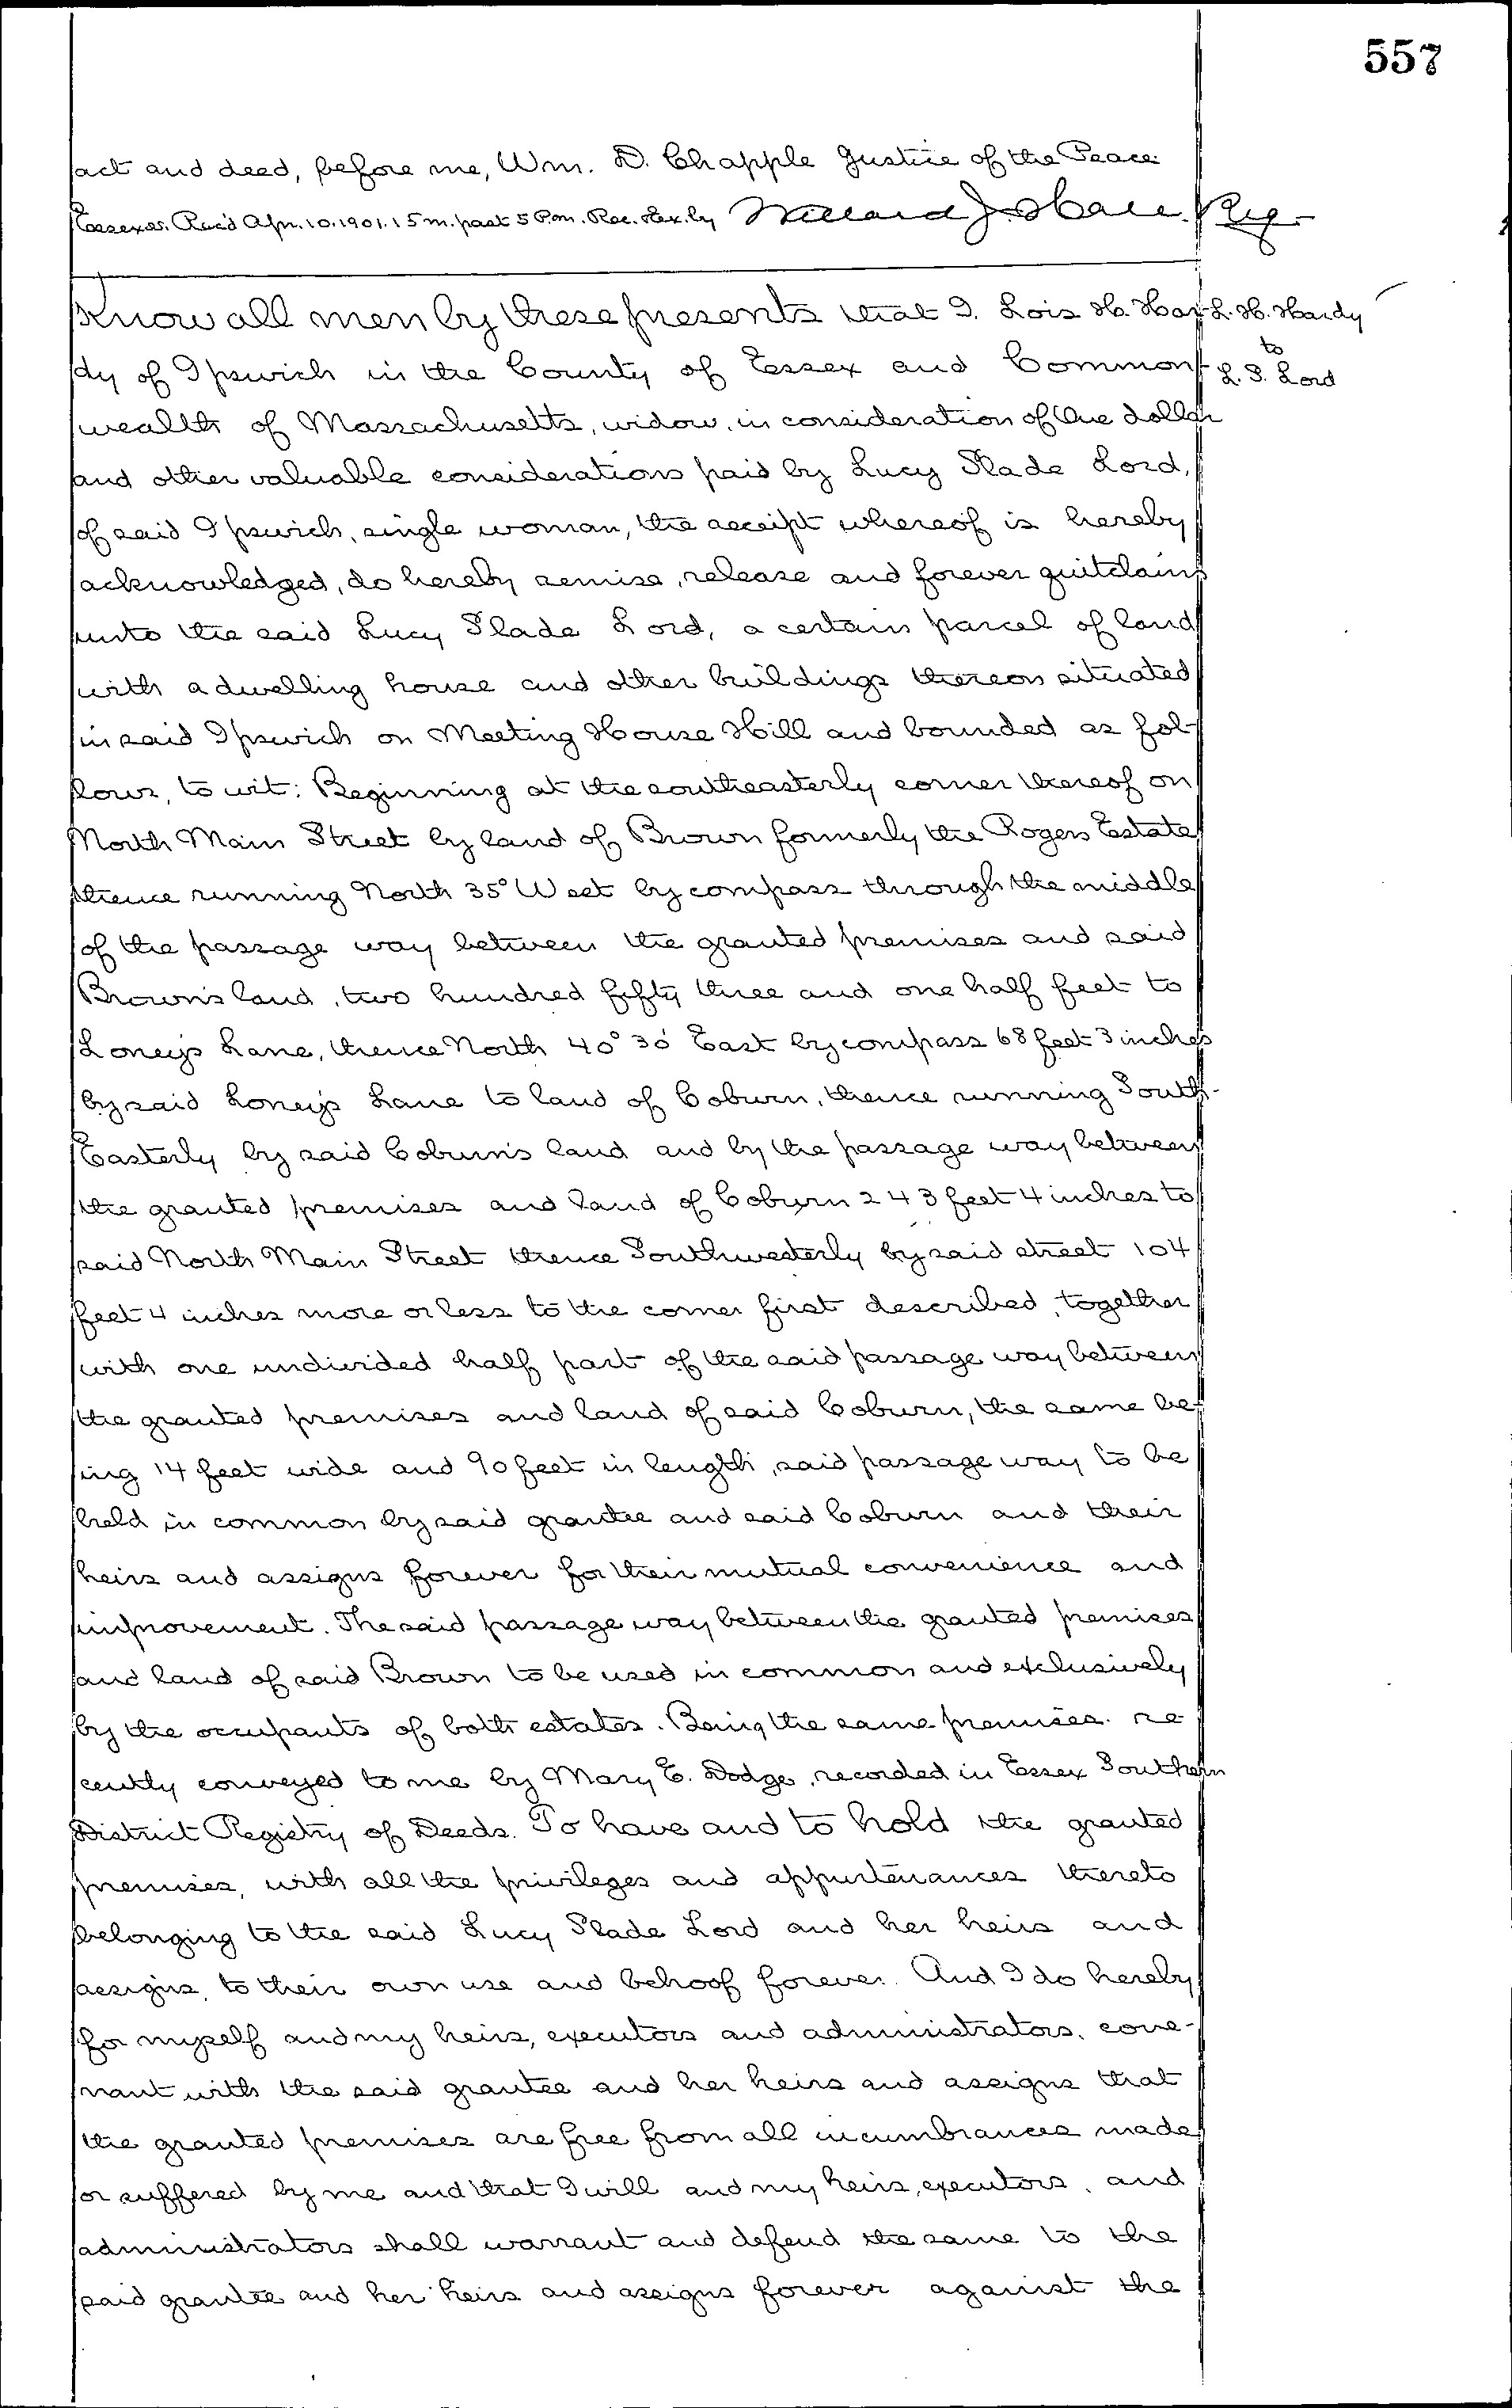 557
act and deed, before me, Wm. D. Chapple Justice of the Peace
Essex ss. Rec'd Apr. 10. 1901. 15 m. past 5 P.m. Rec. & Ex. by Willard J. Hale. Reg.
L. H. Hardy
to
L. S. Lord
Know all men by these presents that I. Lois H. Har-
dy of Ipswich in the County of Essex and Common-
wealth of Massachusetts, widow, in consideration of One dollar
and other valuable considerations paid by Lucy Slade Lord,
of said Ipswich, single woman, the receipt whereof is hereby
acknowledged, do hereby remise, release and forever quitclaim
unto the said Lucy Slade Lord, a certain parcel of land
with a dwelling house and other buildings thereon situated
in said Ipswich on Meeting House Hill and bounded as fol-
lows, to wit: Beginning at the southeasterly corner thereof on
North Main Street by land of Brown formerly the Rogers Estate
thence running North 35° West by compass through the middle
of the passage way between the granted premises and said
Brown's land, two hundred fifty three and one half feet to
Loney's Lane, thence North 40° 30' East by compass 68 feet 3 inches
by said Loney's Lane to land of Coburn, thence running South-
Easterly by said Coburn's land and by the passage way between
the granted premises and land of Coburn 243 feet 4 inches to
said North Main Street thence Southwesterly by said street 104
feet 4 inches more or less to the corner first described, together
with one undivided half part of the said passage way between
the granted premises and land of said Coburn, the same be-
ing 14 feet wide and 90 feet in length, said passage way to be
held in common by said grantee and said Coburn and their
heirs and assigns forever for their mutual convenience and
improvement. The said passage way between the granted premises
and land of said Brown to be used in common and exclusively
by the occupants of both estates. Being the same premises re
cently conveyed to me by Mary E. Dodge, recorded in Essex Southern
District Registry of Deeds. To have and to hold the granted
premises, with all the privileges and appurtenances thereto
belonging to the said Lucy Slade Lord and her heirs and
assigns, to their own use and behoof forever. And I do hereby
for myself and my heirs, executors and administrators, cove-
nant with the said grantee and her heirs and assigns that
the granted premises are free from all incumbrances made
or suffered by me and that I will and my heirs, executors, and
administrators shall warrant and defend the same to the
said grantee and her heirs and assigns forever against the